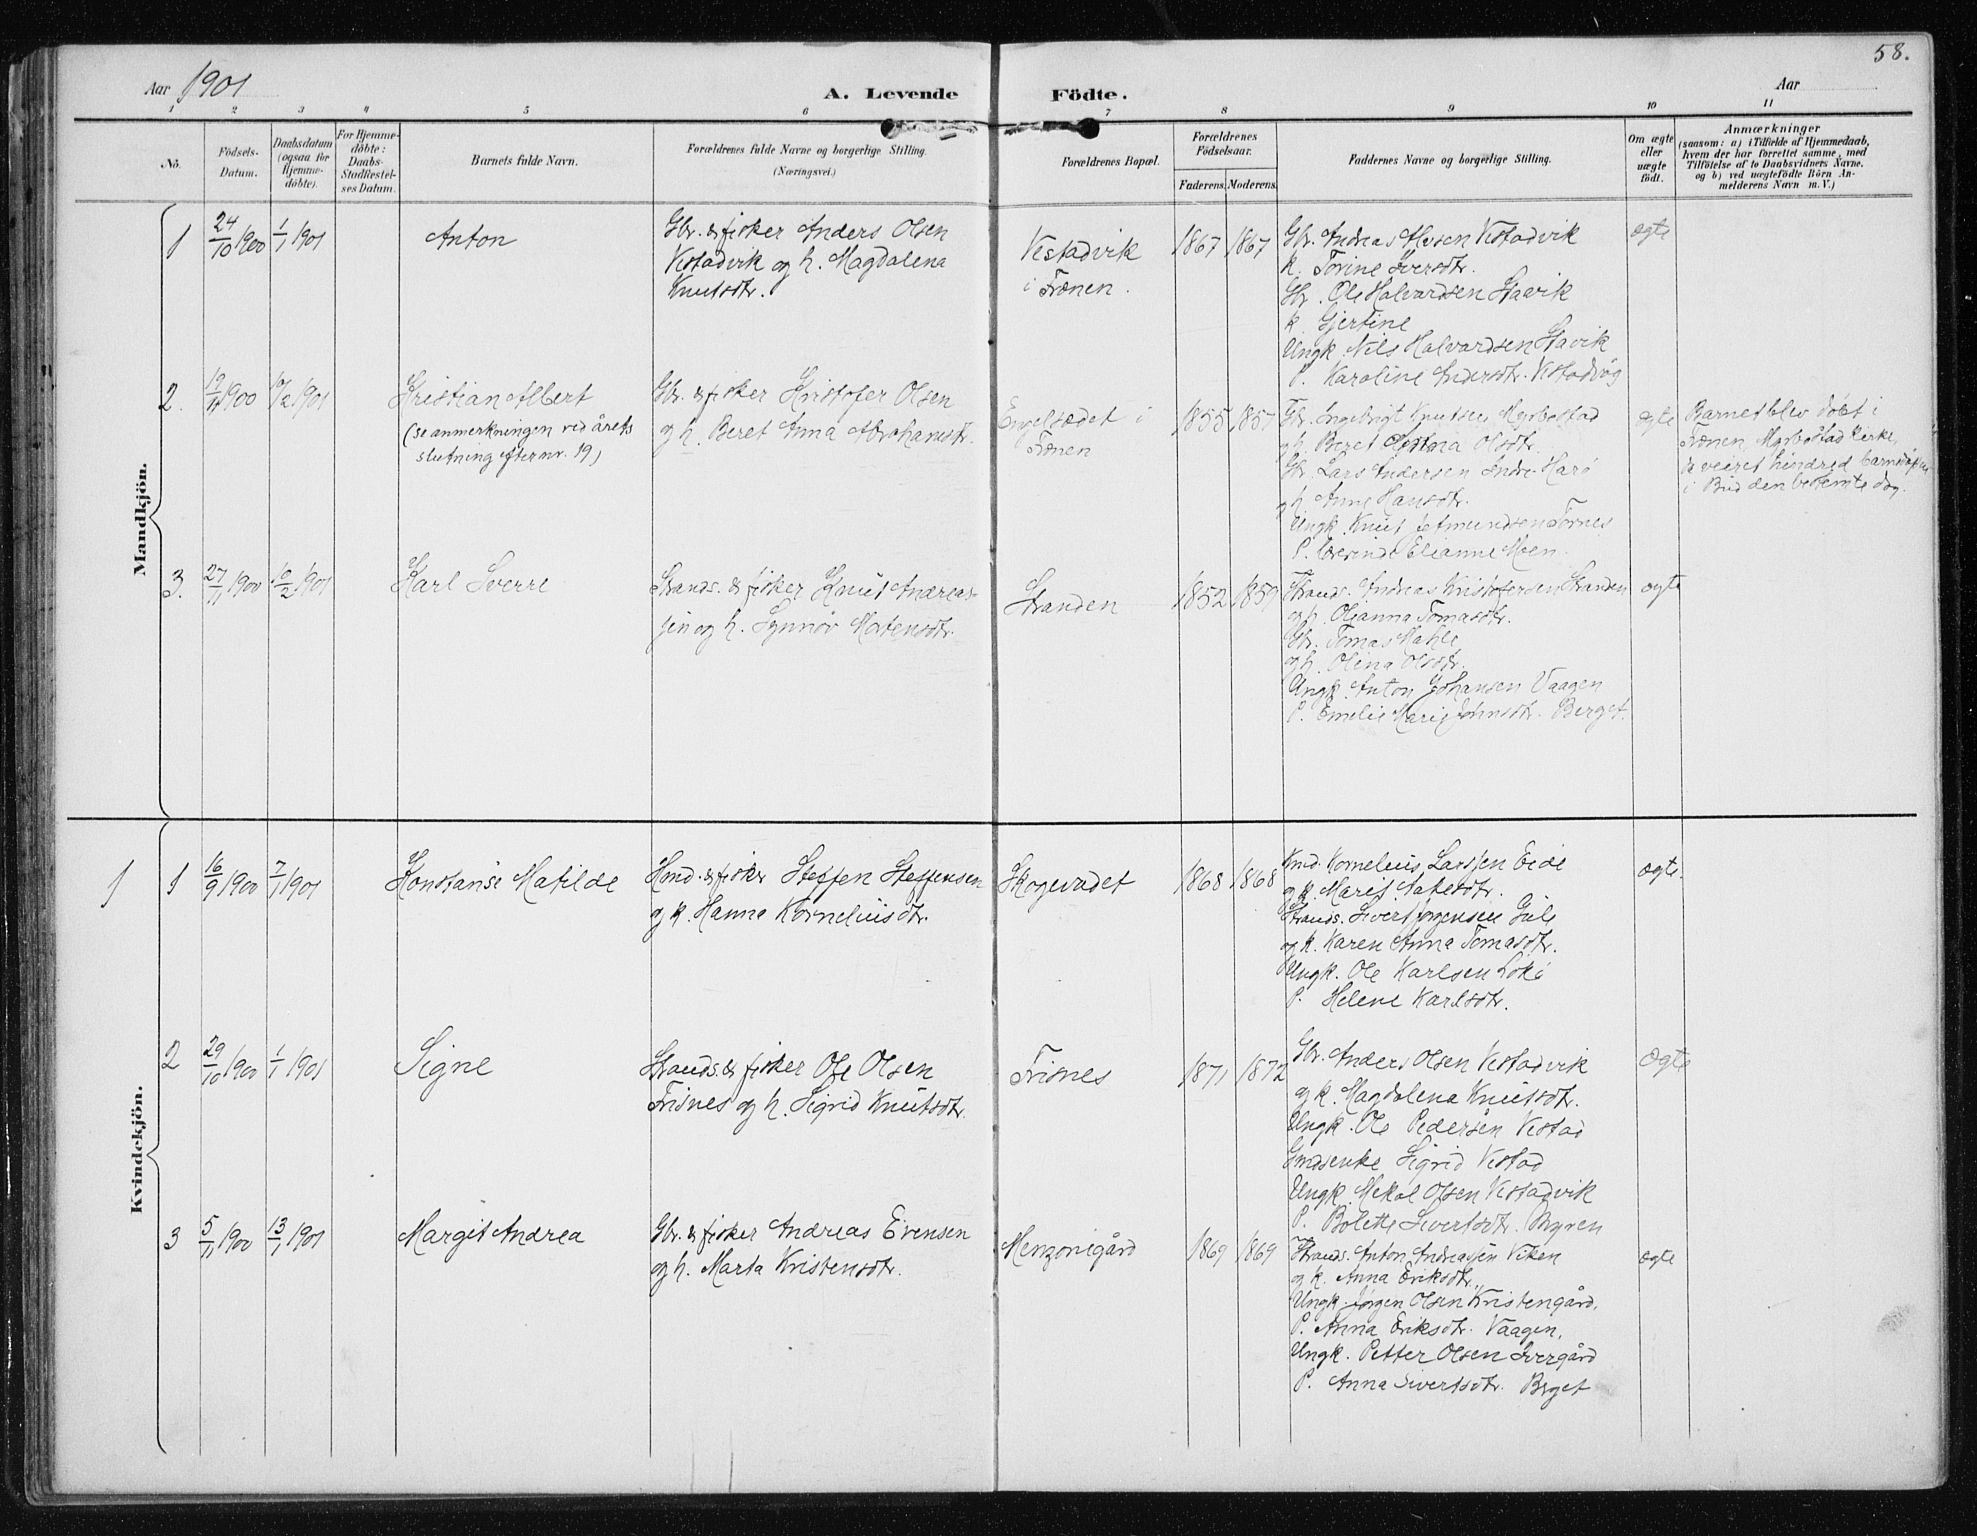 58.
Aar 1901
A. Levende Födte.
Aar
1 2 3 4 5 6 7 8 9 10 11
No.
Födsels-
Datum.
Daabsdatum
(ogsaa for
Hjemme-
döbte).
For Hjemme-
döbte:
Daabs-
Stadfæstel-
ses Datum.
Barnets fulde Navn.
Forældrenes fulde Navne og borgerlige Stilling.
(Næringsvei.)
Forældrenes Bopæl.
Forældrenes
Födselsaar.
Faderens. Moderens.
Faddernes Navne og borgerlige Stilling.
Om ægte
eller
uægte
födt.
Anmærkninger
(saasom: a) i Tilfælde af Hjemmedaab,
hvem der har forrettet samme, med
Tilföielse af to Daabsvidners Navne,
og b) ved uægtefödte Börn An-
melderens Navn m. V.)
Mandkjön.
1
24/10 1900
1/1 1901
Anton
Gbr. & fisker Anders Olsen
Vestadvik og h. Magdalena
Knutsdtr.
Vestadvik
i Frænen.
1867 1867
Gbr. Andreas Olsen Vestadvik
k. Torine Iversdtr.
Gbr. Ole Halvardsen Stavik
k. Gjertine
Ungk. Nils Halvardsen Stavik
P. Karoline Andersdtr. Vestadvåg
ægte
2.
12/11 1900
10/2 1901
Kristian Albert
(se anmerkningen ved årets
slutning efter nr. 19)
Gbr. & fisker Kristofer Olsen
og h. Beret Anna Abrahamsdtr.
Engelsædet i
Frænen
1855 1857
Gbr. Ingebrigt Knutsen Myrbostad
og h. Beret Olsdtr.
Gbr. Lars Andersen Indre Harö
og h. Anne Hansdtr.
Ungk. Knut Jetmundsen Tornes
P. Elianne Moen.
ægte
Barnet blev döbt i
Frænen, Myrbostad kirke,
da veiret hindred barnedåben
i Bud den bestemte dag.
3.
27/11 1900
10/2 1901
Karl Sverre
Strands. & fisker Knut Andreas-
sen og h. Synnöv Mortensdtr.
Stranden
1852 1859
Strands. Andreas Kristofersen Stranden
og h. Olianna Tomasdtr.
Gbr. Tomas Mahle
og h. Olina Olsdtr.
Ungk. Anton Johansen Vaagen
P. Emelie Marie Johnsdtr. Berget.
ægte
Kvindekjön.
1
1
16/9 1900
7/1 1901
Konstanse Matilde
Hmd. & fisker Steffen Steffensen
og k. Hanna Korneliusdtr.
Skogevadet
1868 1868
Kmd. Kornelius Larssen Eide
og k. Marit
Strands. Sivert Jørgensen Gule
og k. Karen Anna Tomasdtr.
Ungk. Ole Karlsen
P. Helene Karlsdtr.
ægte.
2
29/10 1900
1/1 1901
Signe
Strands. & fisker Ole Olsen
Frisnes og h. Sigrid Knutsdtr.
Frisnes
1871 1872
Gbr. Anders Olsen Vestadvik
og k. Magdalena Knutsdtr.
Ungk. Ole Pedersen Vestad
Gmdsenke Sigrid Vestad
Ungk. Mekal Olsen Vestadvik
P. Bolette Sivertsdtr. Myren
Ægte
3
5/11 1900
13/1 1901
Margit Andrea
Gbr. & fisker Andreas Evensen
og h. Marta Kristensdtr.
Menzonigård
1869 1869
Strands. Anton Andreassen Viken
og k. Anna Eriksdtr.
Ungk. Jørgen Olsen Kristengård.
P. Anna Eriksdtr. Vaagen.
Ungk. Petter Olsen Ivergård
P. Anna Sivertsdtr. Berget
ægte